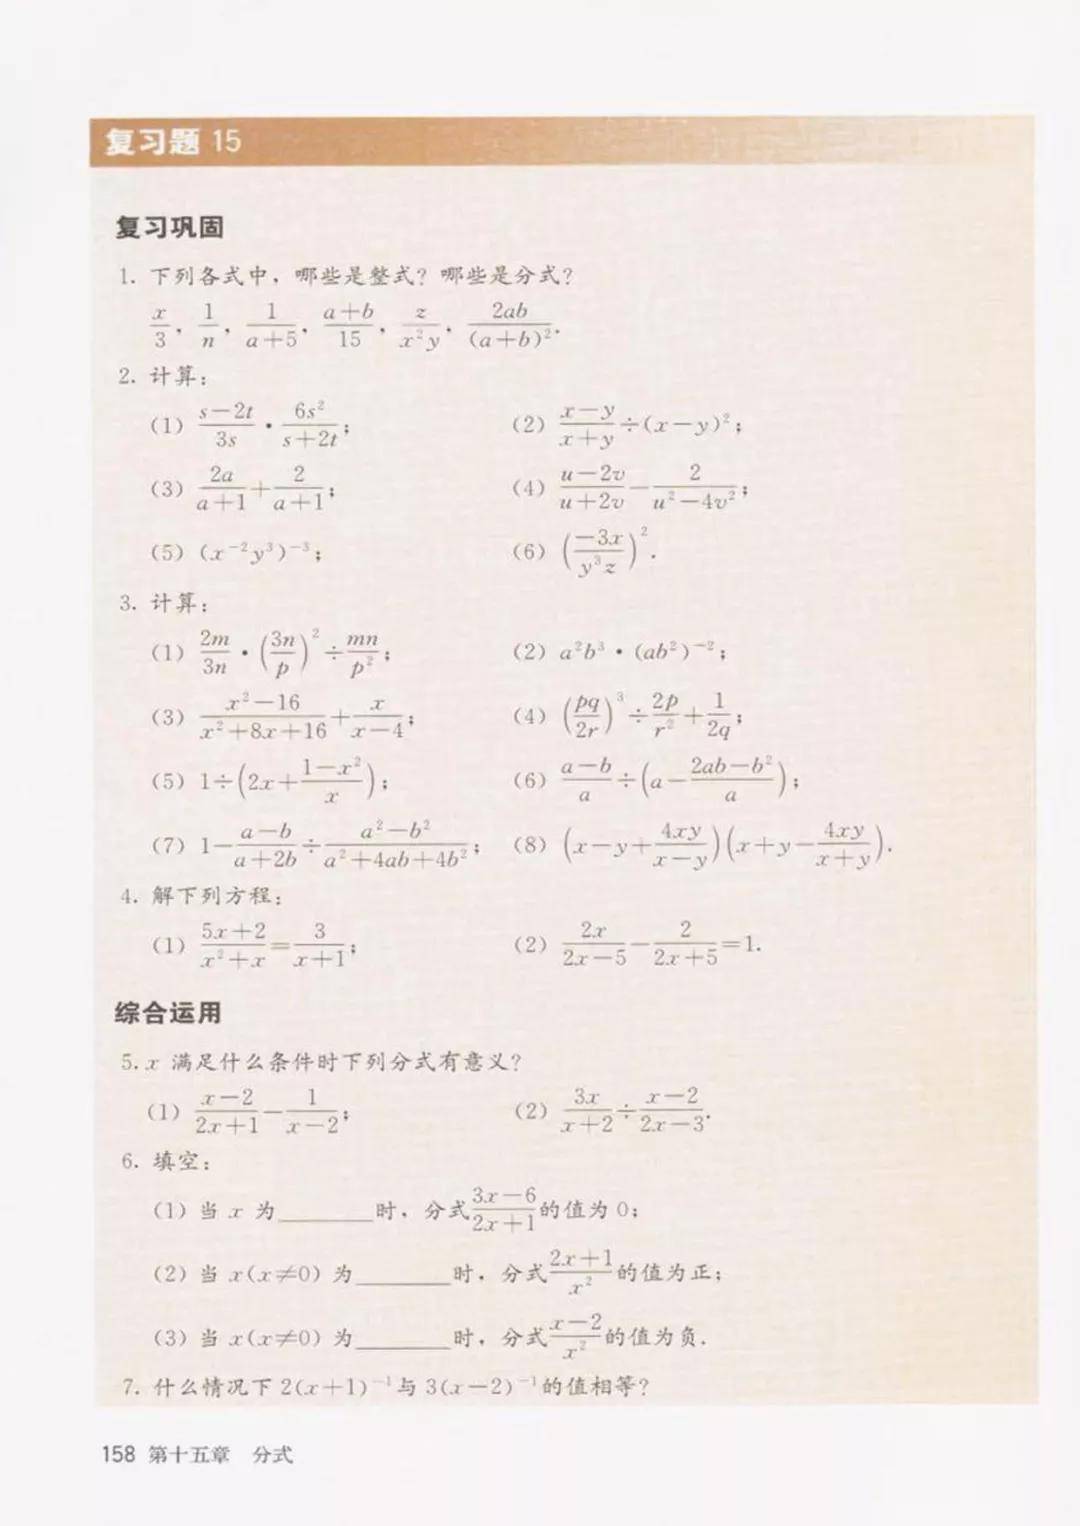 复习题 15
复习巩固
1. 下列各式中，哪些是整式？哪些是分式？
x/3，1/n，1/(a+5)，(a+b)/15，z/(x²y)，2ab/(a+b)².
2. 计算：
(1) (s-2t)/(3s) · 6s²/(s+2t)； (2) (x-y)/(x+y) ÷ (x-y)²；
(3) 2a/(a+1) + 2/(a+1)； (4) (u-2v)/(u+2v) - 2/(u²-4v²)；
(5) (x⁻²y³)⁻³； (6) (-3x/(y³z))².
3. 计算：
(1) 2m/3n · (3n/p)² ÷ mn/p²； (2) a²b³ · (ab²)⁻²；
(3) (x²-16)/(x²+8x+16) + x/(x-4)； (4) (pq/2r)³ ÷ 2p/r² + 1/2q；
(5) 1÷(2x+(1-x²)/x)； (6) (a-b)/a ÷ (a-(2ab-b²)/a)；
(7) 1-(a-b)/(a+2b) ÷ (a²-b²)/(a²+4ab+4b²)； (8) (x-y+4xy/(x-y))(x+y-4xy/(x+y)).
4. 解下列方程：
(1) (5x+2)/(x²+x) = 3/(x+1)； (2) 2x/(2x-5) - 2/(2x+5) = 1.
综合运用
5. x 满足什么条件时下列分式有意义？
(1) (x-2)/(2x+1) - 1/(x-2)； (2) 3x/(x+2) ÷ (x-2)/(2x-3).
6. 填空：
(1) 当 x 为________时，分式(3x-6)/(2x+1)的值为 0；
(2) 当 x(x≠0) 为________时，分式(2x+1)/x²的值为正；
(3) 当 x(x≠0) 为________时，分式(x-2)/x²的值为负.
7. 什么情况下 2(x+1)⁻¹与 3(x-2)⁻¹的值相等？
158 第十五章 分式